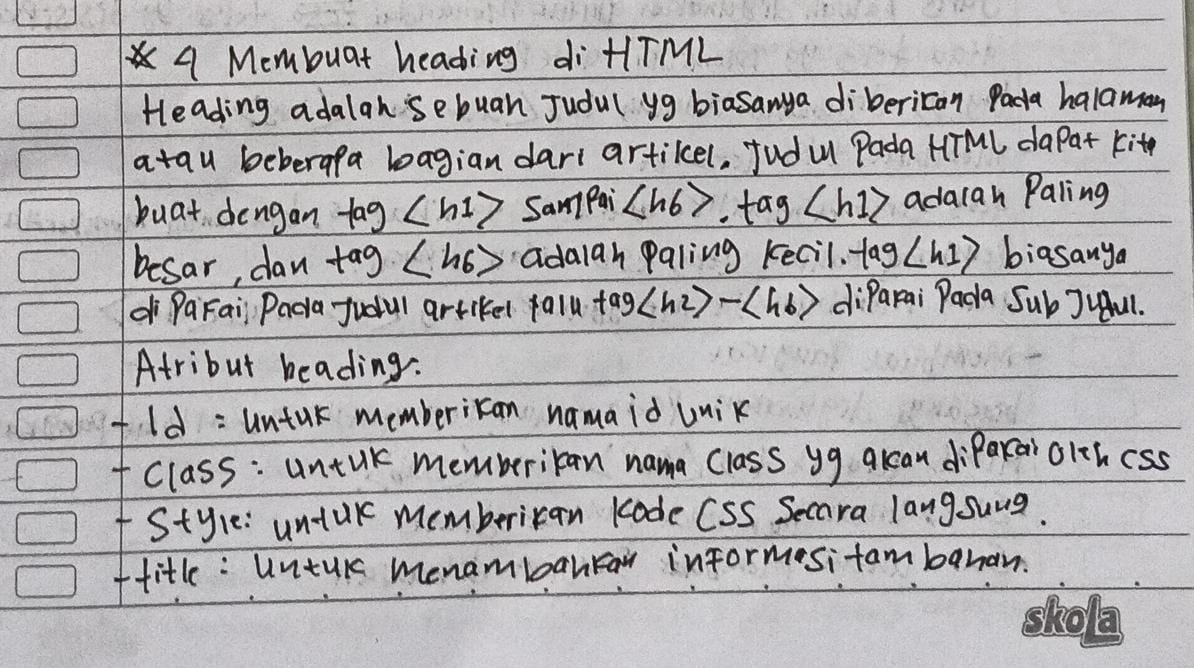 * 4 Membuat heading di HTML
Heading adalah sebuah Judul yg biasanya diberikan Pada halaman
atau beberapa bagian dari artikel. Judul Pada HTML dapat kita
buat dengan tag <h1> Sampai <h6>. tag <h1> adalah Paling
besar, dan tag <h6> adalah paling kecil. tag <h1> biasanya
di Pakai Pada Judul artikel lalu tag <h2> - <h6> diPakai Pada Sub Judul.
Atribut heading:
- Id : untuk memberikan nama id Unik
- Class : untuk memberikan nama Class yg akan diPakai oleh CSS
- Style : untuk memberikan kode CSS Secara langsung.
- title : Untuk menambahkan informasi tambahan.
skola